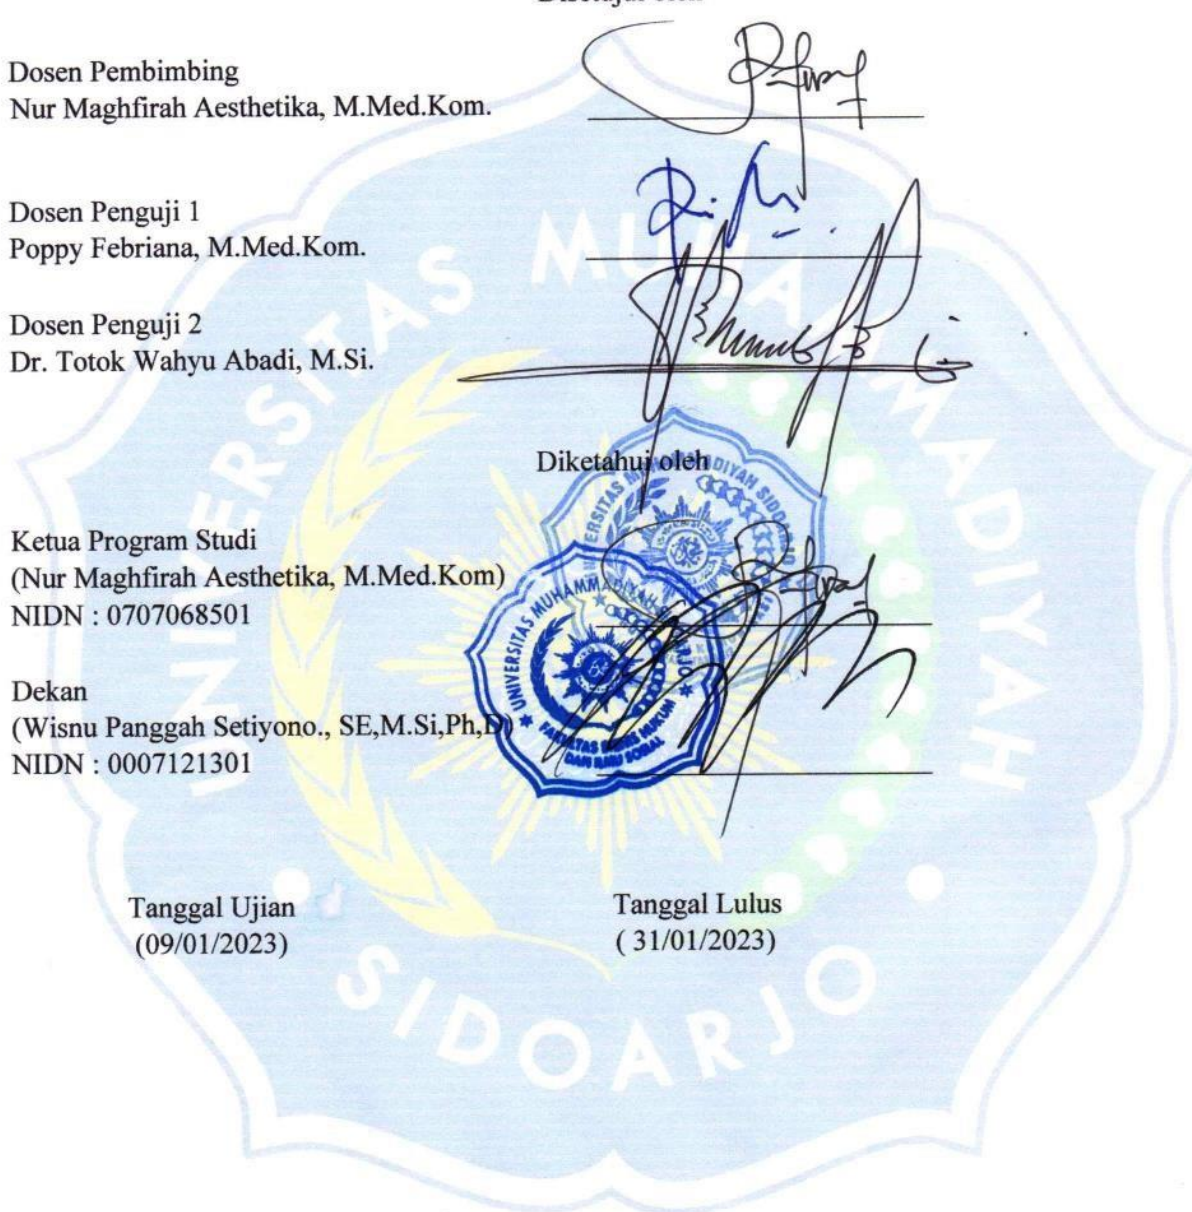 Disetujui oleh
Dosen Pembimbing
Nur Maghfirah Aesthetika, M.Med.Kom.
Dosen Penguji 1
Poppy Febriana, M.Med.Kom.
Dosen Penguji 2
Dr. Totok Wahyu Abadi, M.Si.
Diketahui oleh
Ketua Program Studi
(Nur Maghfirah Aesthetika, M.Med.Kom)
NIDN : 0707068501
Dekan
(Wisnu Panggah Setiyono., SE,M.Si,Ph,D)
NIDN : 0007121301
Tanggal Ujian
(09/01/2023)
Tanggal Lulus
( 31/01/2023)
UNIVERSITAS MUHAMMADIYAH
SIDOARJO
UNIVERSITAS MUHAMMADIYAH SIDOARJO
UNIVERSITAS MUHAMMADIYAH SIDOARJO
FAKULTAS BISNIS HUKUM
DAN ILMU SOSIAL